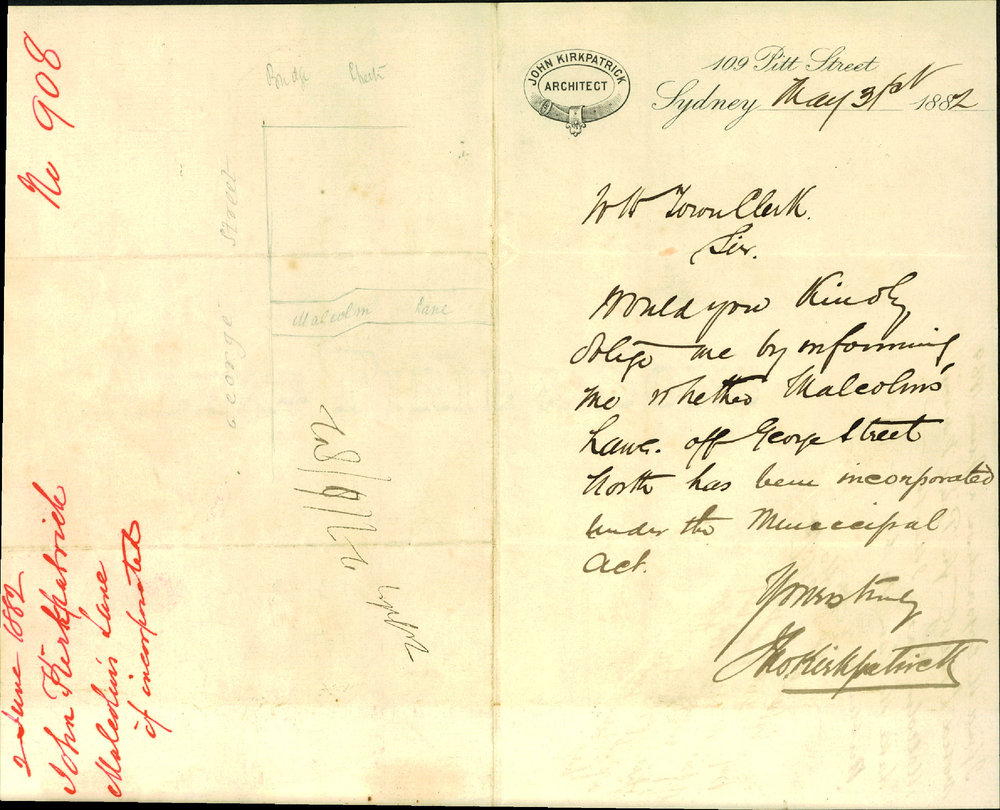 No 908
2 June 1882
John Kirkpatrick
Malcolm's Lane
if incorporated
Bridge Street
George Street
Malcolm Lane
JOHN KIRKPATRICK
ARCHITECT
109 Pitt Street
Sydney May 31st 1882
Town Clerk.
Sir.
Would you Kindly
oblige me by informing
me whether Malcolm's
Lane. off George Street
North has been incorporated
under the Municipal
Act.
Yours truly
Jno Kirkpatrick